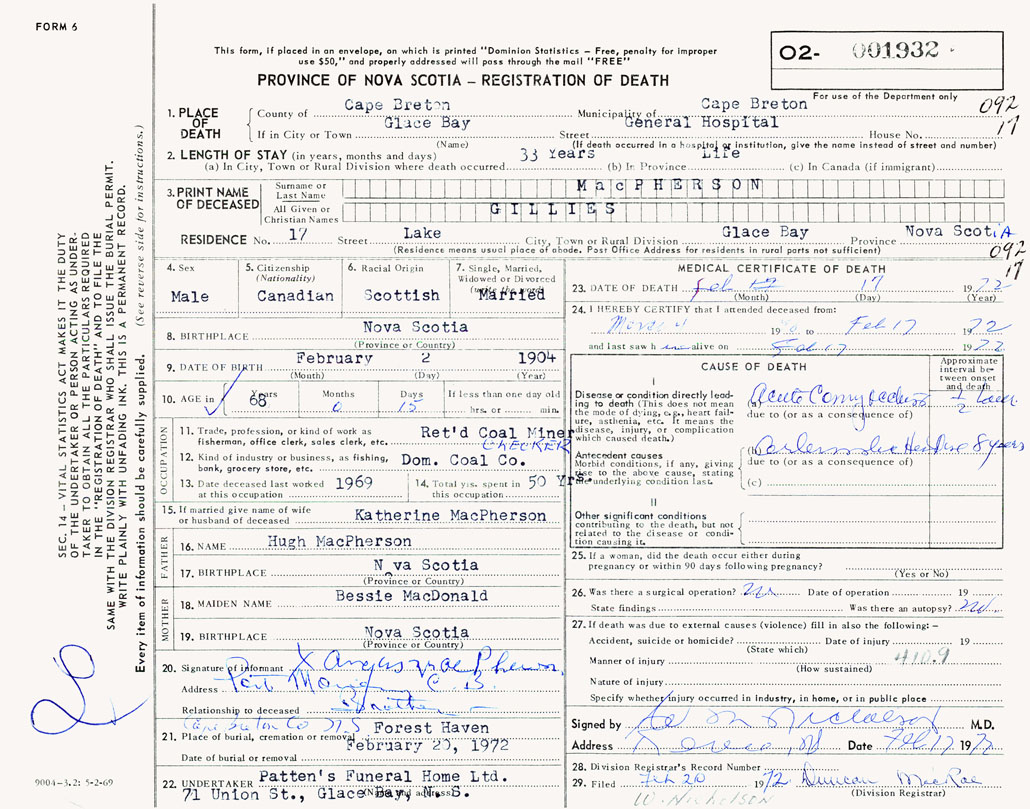 FORM 6
This form, if placed in an envelope, on which is printed "Dominion Statistics – Free, penalty for improper
use $50," and properly addressed will pass through the mail "FREE"
PROVINCE OF NOVA SCOTIA – REGISTRATION OF DEATH
O2- 001932
For use of the Department only
092
17
1. PLACE OF DEATH
County of Cape Breton Municipality of Cape Breton
If in City or Town Glace Bay Street General Hospital House No.
(Name) (If death occurred in a hospital or institution, give the name instead of street and number)
2. LENGTH OF STAY (in years, months and days) 33 Years Life
(a) In City, Town or Rural Division where death occurred (b) In Province (c) In Canada (if immigrant)
3. PRINT NAME OF DECEASED
Surname or Last Name MacPHERSON
All Given or Christian Names GILLIES
RESIDENCE No. 17 Street Lake City, Town or Rural Division Glace Bay Province Nova Scotia
(Residence means usual place of abode. Post Office Address for residents in rural parts not sufficient)
092
17
4. Sex Male
5. Citizenship (Nationality) Canadian
6. Racial Origin Scottish
7. Single, Married, Widowed or Divorced Married
8. BIRTHPLACE Nova Scotia
(Province or Country)
9. DATE OF BIRTH February 2 1904
(Month) (Day) (Year)
10. AGE in Years 68 Months 0 Days 15 If less than one day old hrs. or min.
OCCUPATION
11. Trade, profession, or kind of work as fisherman, office clerk, sales clerk, etc. Ret'd Coal Miner
CHECKER
12. Kind of industry or business, as fishing, bank, grocery store, etc. Dom. Coal Co.
13. Date deceased last worked at this occupation 1969
14. Total yrs. spent in this occupation 50 Yrs.
15. If married give name of wife or husband of deceased Katherine MacPherson
FATHER
16. NAME Hugh MacPherson
17. BIRTHPLACE Nova Scotia
(Province or Country)
MOTHER
18. MAIDEN NAME Bessie MacDonald
19. BIRTHPLACE Nova Scotia
(Province or Country)
20. Signature of informant X Angus MacPherson
Address Port Morien C.B.
Relationship to deceased Brother
Cape Breton Co N.S
21. Place of burial, cremation or removal Forest Haven
Date of burial or removal February 20, 1972
22. UNDERTAKER Patten's Funeral Home Ltd.
71 Union St., Glace Bay, N. S.
(Name and address)
MEDICAL CERTIFICATE OF DEATH
23. DATE OF DEATH Feb 17 1972
(Month) (Day) (Year)
24. I HEREBY CERTIFY that I attended deceased from:
19 to Feb 17 1972
and last saw him alive on Feb 17 1972
CAUSE OF DEATH
Approximate interval between onset and death
I
Disease or condition directly leading to death (This does not mean the mode of dying, e.g., heart failure, asthenia, etc. It means the disease, injury, or complication which caused death.)
(a) Acute 1/2 hour
due to (or as a consequence of)
Antecedent causes
Morbid conditions, if any, giving rise to the above cause, stating the underlying condition last.
(b) 8 years
due to (or as a consequence of)
(c)
II
Other significant conditions contributing to the death, but not related to the disease or condition causing it.
25. If a woman, did the death occur either during pregnancy or within 90 days following pregnancy?
(Yes or No)
26. Was there a surgical operation? no Date of operation 19
State findings Was there an autopsy? no
27. If death was due to external causes (violence) fill in also the following: –
Accident, suicide or homicide? Date of injury 19
(State which)
Manner of injury 410.9
(How sustained)
Nature of injury
Specify whether injury occurred in industry, in home, or in public place
Signed by Nicholson M.D.
Address Date Feb 17 1972
28. Division Registrar's Record Number
29. Filed Feb 20 1972 Duncan MacRae
(Division Registrar)
W. Nicholson
SEC. 14 – VITAL STATISTICS ACT MAKES IT THE DUTY
OF THE UNDERTAKER OR PERSON ACTING AS UNDER-
TAKER TO OBTAIN ALL THE PARTICULARS REQUIRED
IN THE "REGISTRATION OF DEATH" AND TO FILE THE
SAME WITH THE DIVISION REGISTRAR WHO SHALL ISSUE THE BURIAL PERMIT.
WRITE PLAINLY WITH UNFADING INK. THIS IS A PERMANENT RECORD.
Every item of information should be carefully supplied. (See reverse side for instructions.)
9004-3.2: 5-2-69